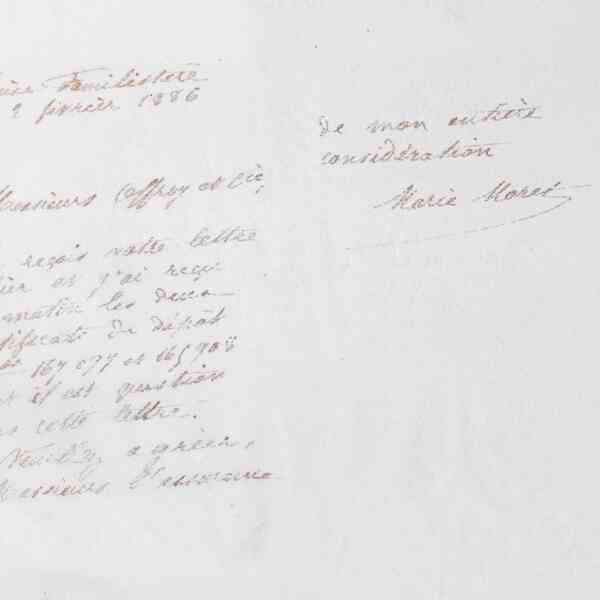 Familistère
2 février 1886
Messieurs Coffroy et Cie,
reçois votre lettre
et j'ai reçu
matin les deux
de dépôt
167 077 et 165 908
il est question
cette lettre.
Veuillez agréer,
Messieurs l'assurance
de mon entière
considération
Marie Moret